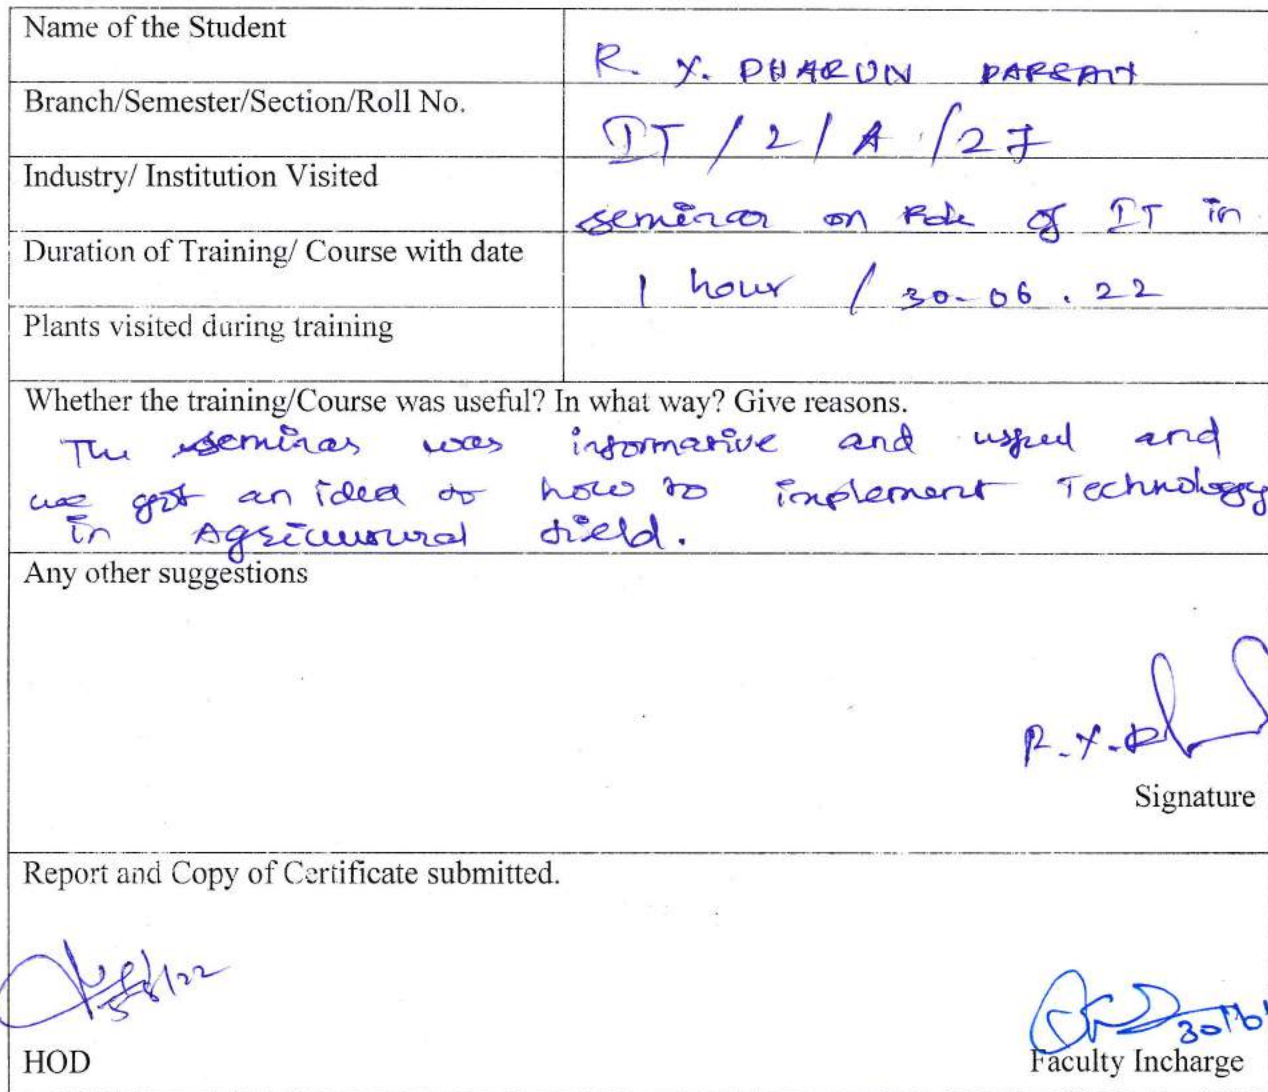 Name of the Student
R. X. DHARUN
Branch/Semester/Section/Roll No.
IT / 2 / A / 27
Industry/ Institution Visited
seminar on Role of IT in
Duration of Training/ Course with date
1 hour / 30-06.22
Plants visited during training
Whether the training/Course was useful? In what way? Give reasons.
The seminar was informative and useful and
we got an idea to how to implement Technology
in Agricultural field.
Any other suggestions
R.X.
Signature
Report and Copy of Certificate submitted.
HOD
Faculty Incharge